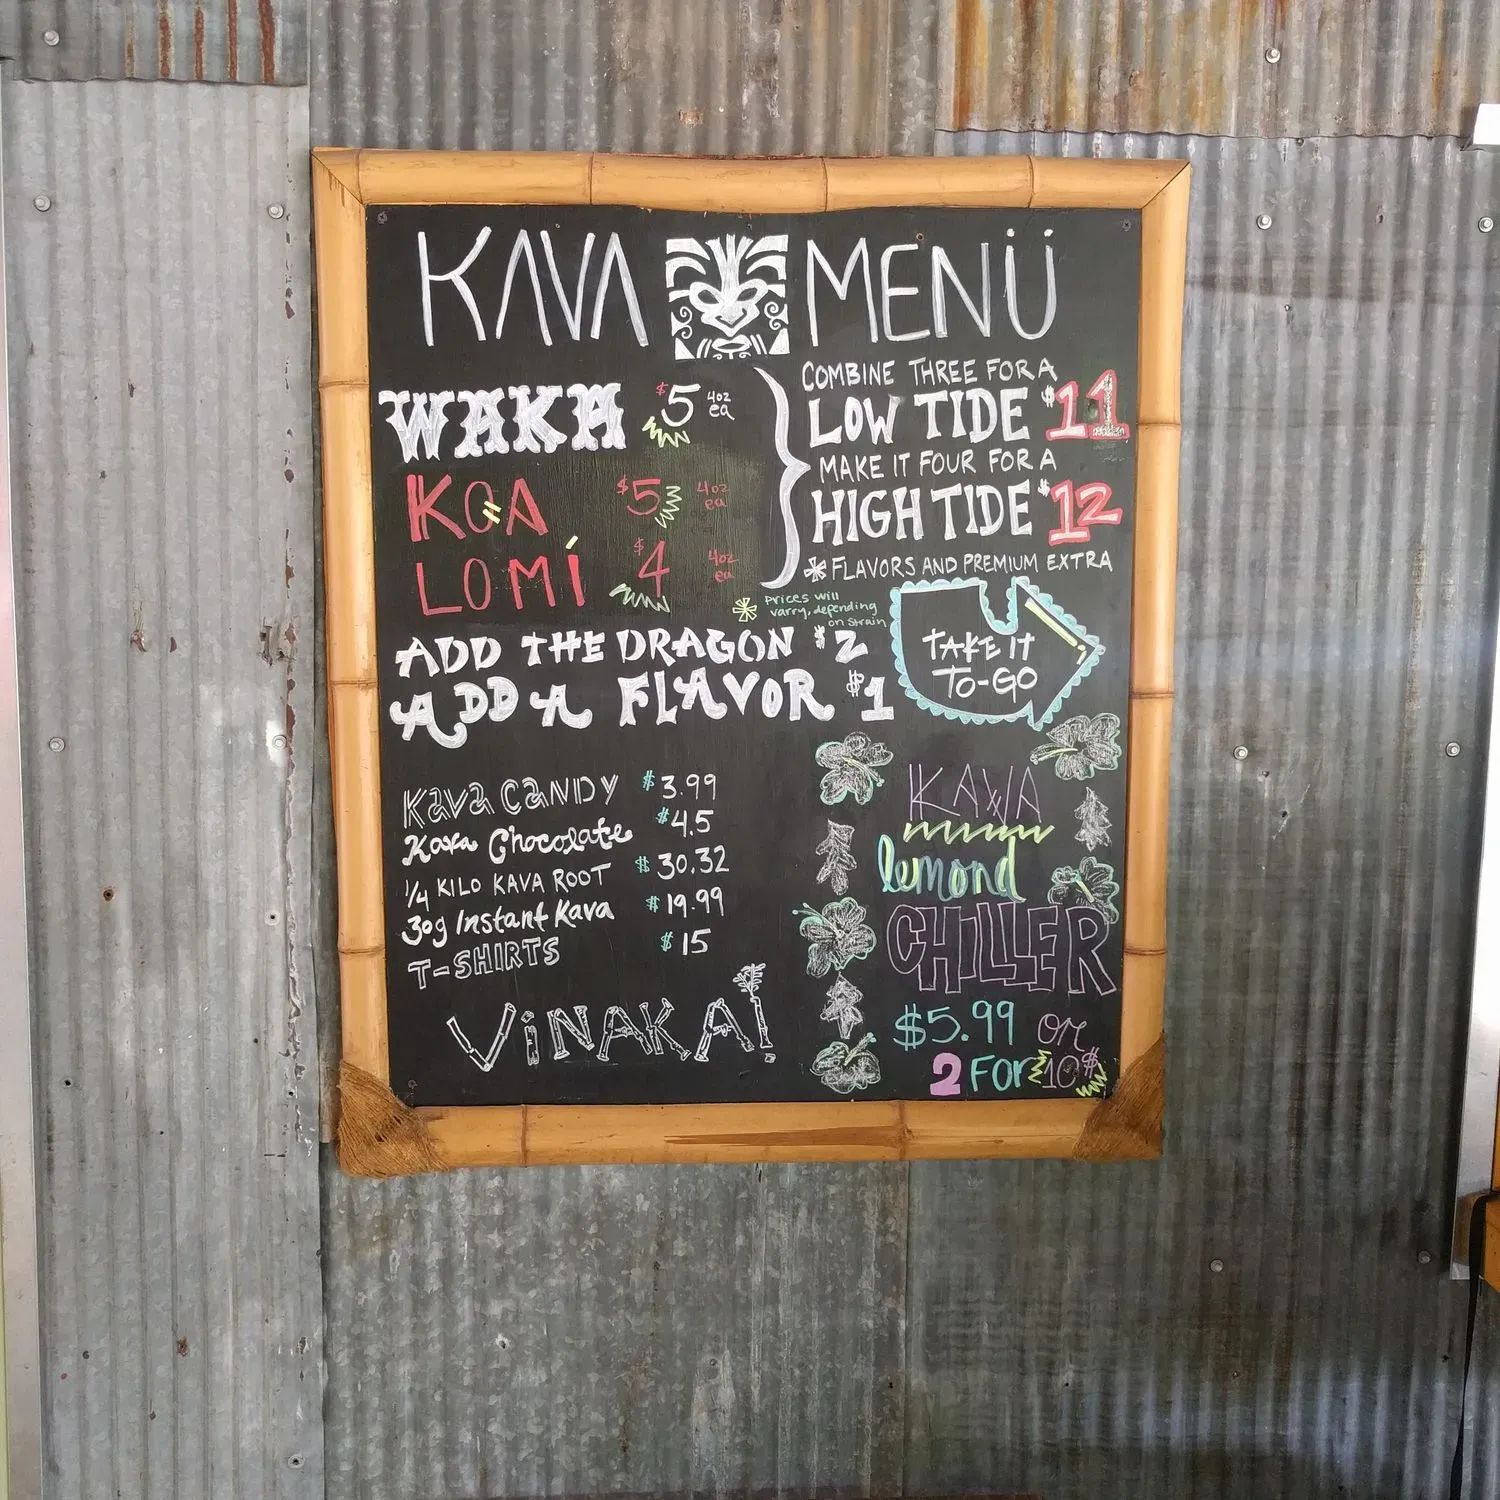 KAVA MENÜ
WAKA $5 4oz ea
KOA $5 4oz ea
LOMI $4 4oz ea
COMBINE THREE FOR A
LOW TIDE $11
MAKE IT FOUR FOR A
HIGH TIDE $12
* FLAVORS AND PREMIUM EXTRA
* Prices will
varry, depending
on strain
ADD THE DRAGON $2
ADD A FLAVOR $1
TAKE IT
TO-GO
Kava CANDY $3.99
Kava Chocolate $4.5
1/4 KILO KAVA ROOT $30.32
30g Instant Kava $19.99
T-SHIRTS $15
VINAKA!
KAVA
lemond
CHILLER
$5.99 or
2 For 10$